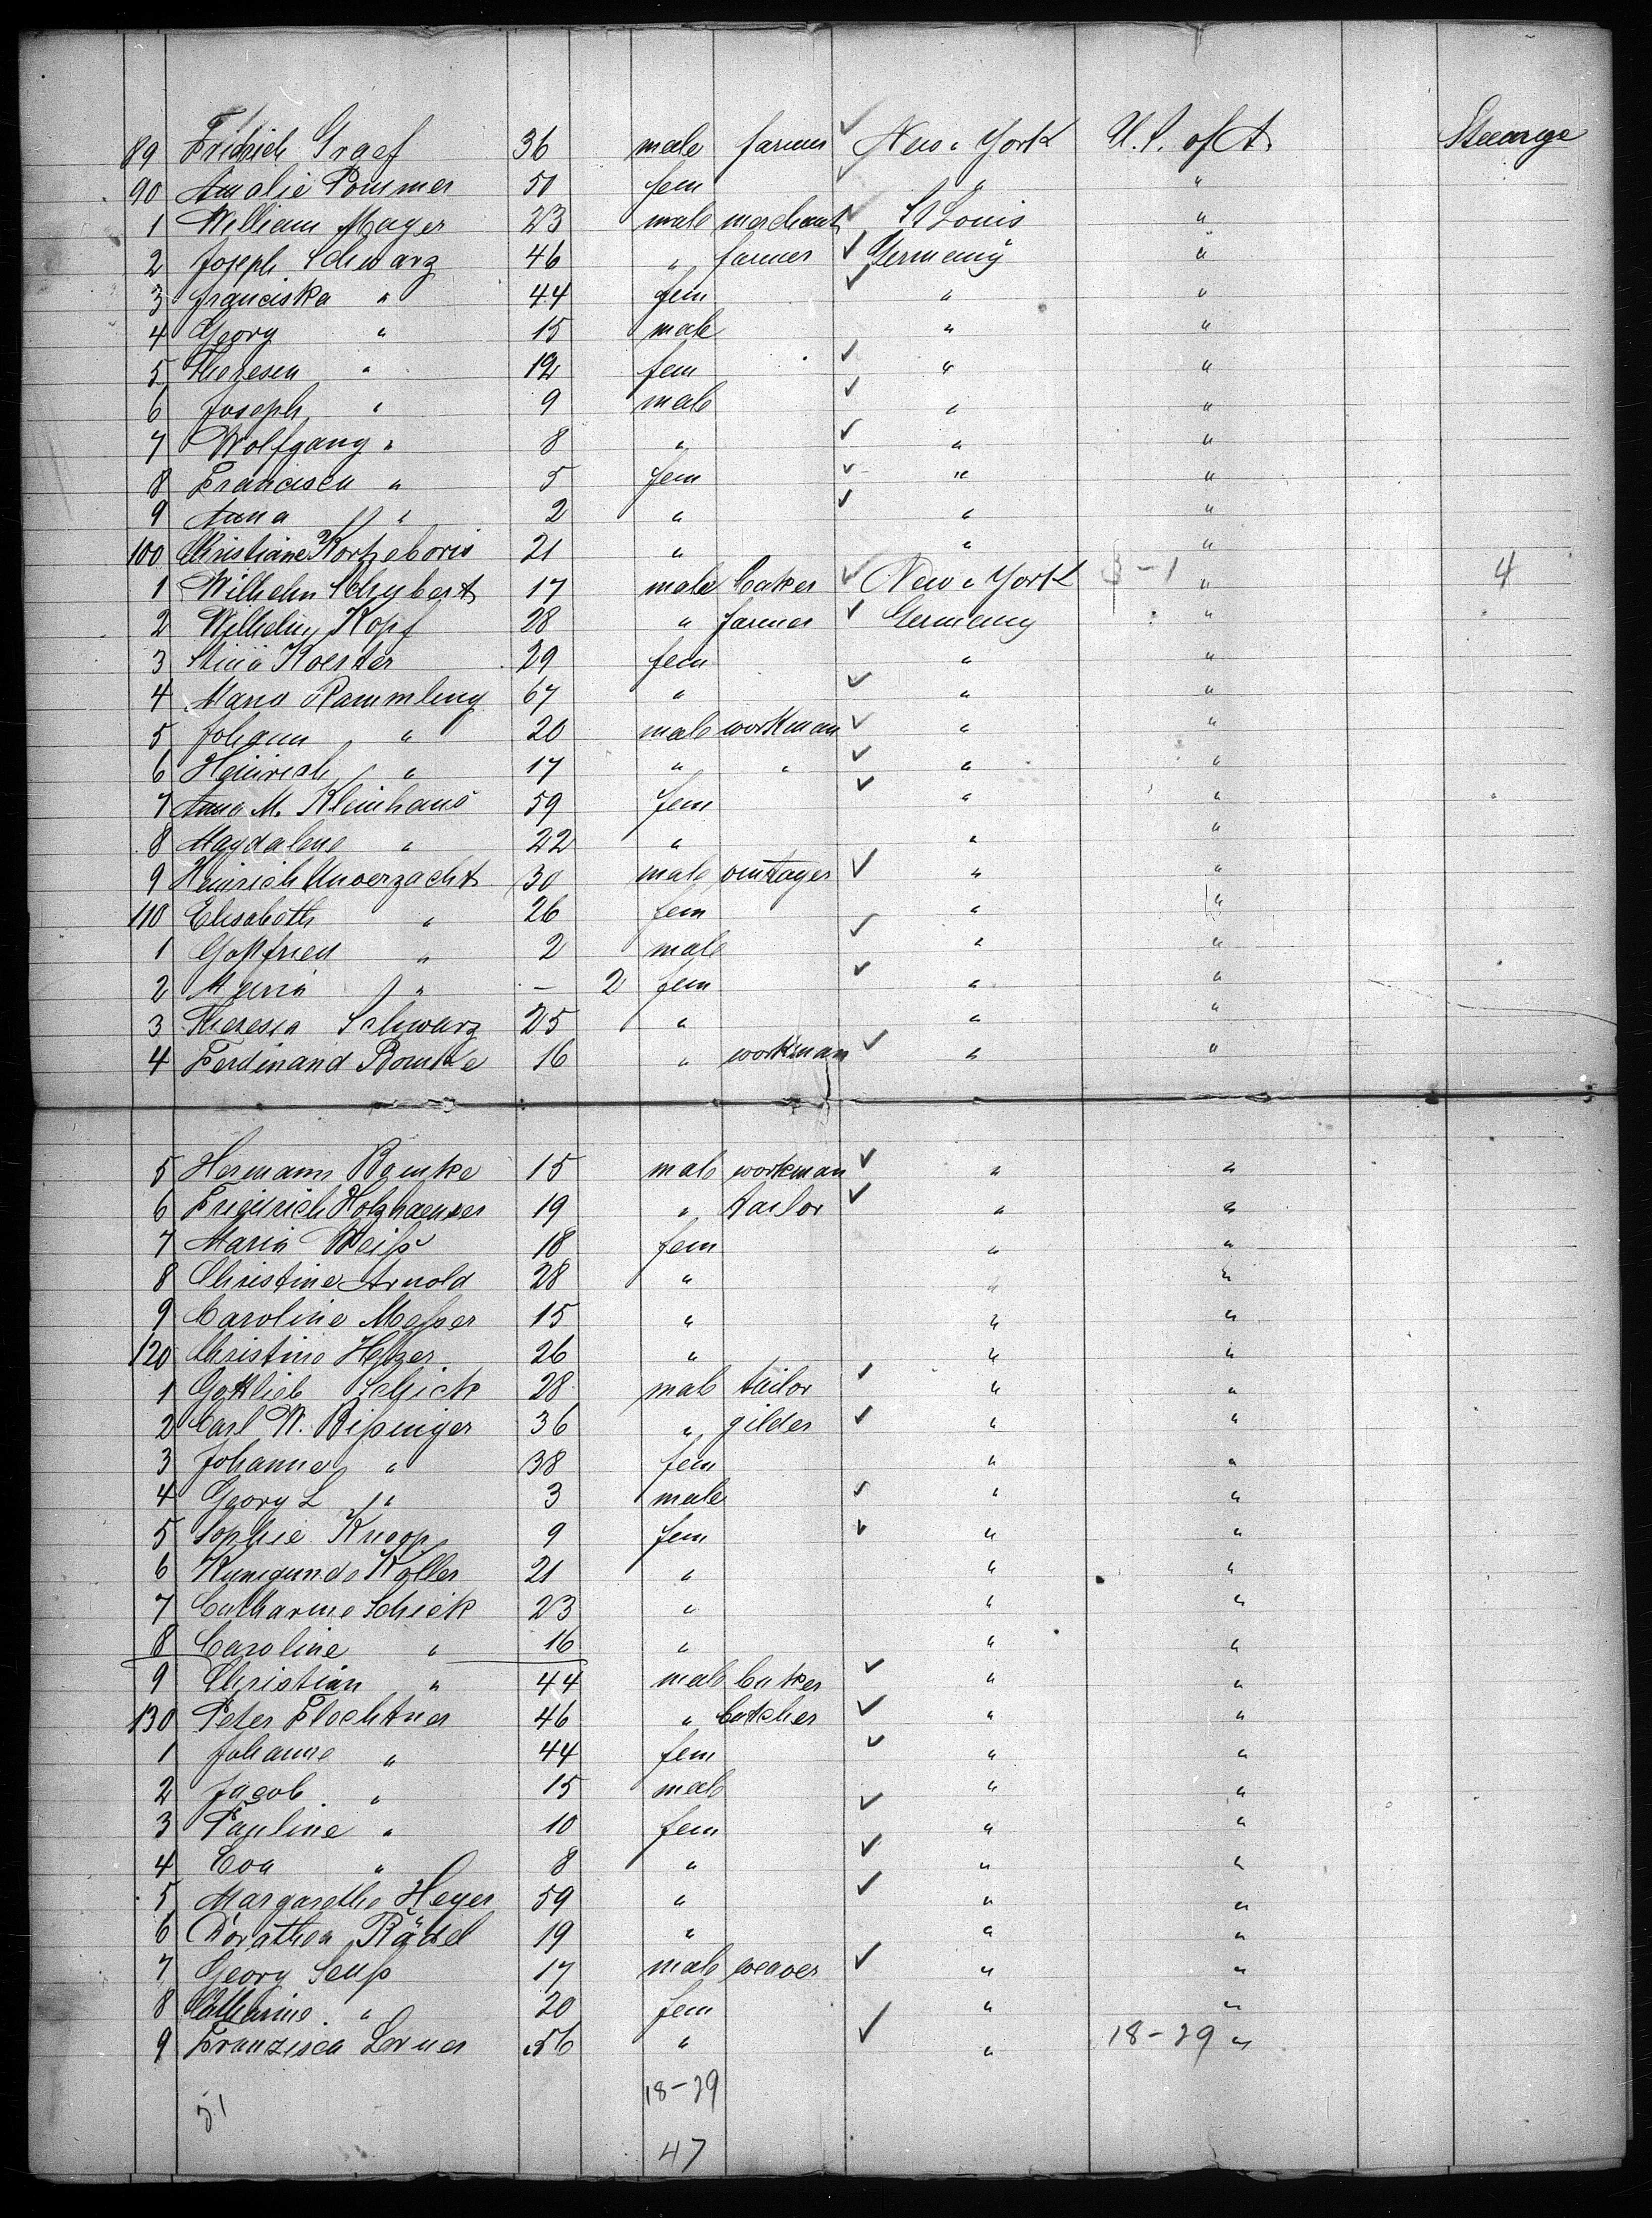 89 Fridrich Graef 36 male farmer New-York U.S. of A. Steerage
90 Amalie Pommer 50 fem " "
1 William Mayer 23 male merchant St Louis "
2 Joseph Schwarz 46 " farmer Germany "
3 franciska " 44 fem " "
4 Georg " 15 male " "
5 Theresia " 12 fem " "
6 Joseph " 9 male " "
7 Wolfgang " 8 " " "
8 Francisca " 5 fem " "
9 Anna " 2 " " "
100 Christiane 21 " " "
1 Wilhelm Schubert 17 male baker New-York 3-1 " 4
2 Wilhelm Kopf 28 " farmer Germany "
3 Koester 29 fem " "
4 Maria Rammling 67 " " "
5 Johann " 20 male workman " "
6 Heinrich " 17 " " " "
7 Anna M. Kleinhans 59 fem " "
8 Magdalene " 22 " " "
9 Heinrich Unverzacht 30 male " "
110 Elisabeth " 26 fem " "
1 Gottfried " 2 male " "
2 Maria " — 2 fem " "
3 Theresia Schwarz 25 " " "
4 Ferdinand Bomke 16 " workman " "
5 Hermann Bomke 15 male workman " "
6 Friedrich Holzhaeuser 19 " tailor " "
7 Maria Weiß 18 fem " "
8 Christine Arnold 28 " " "
9 Caroline Meßer 15 " " "
120 Christine 26 " " "
1 Gottlieb Schick 28 male tailor " "
2 Carl W. Bißinger 36 " gilder " "
3 Johanne " 38 fem " "
4 Georg L " 3 male " "
5 Sophie Knopp 9 fem " "
6 Kunigunde Koller 21 " " "
7 Catharine Schick 23 " " "
8 Caroline " 16 " " "
9 Christian " 44 male baker " "
130 Peter Flechtner 46 " butcher " "
1 Johanne " 44 fem " "
2 Jacob " 15 male " "
3 Pauline " 10 fem " "
4 Eva " 8 " " "
5 Margarethe Heyer 59 " " "
6 Dorathea Rädel 19 " " "
7 Georg Seuß 17 male weaver " "
8 Catharine " 20 fem " "
9 Franzisca Lorner 56 " " 18-29 "
51 18-29
47